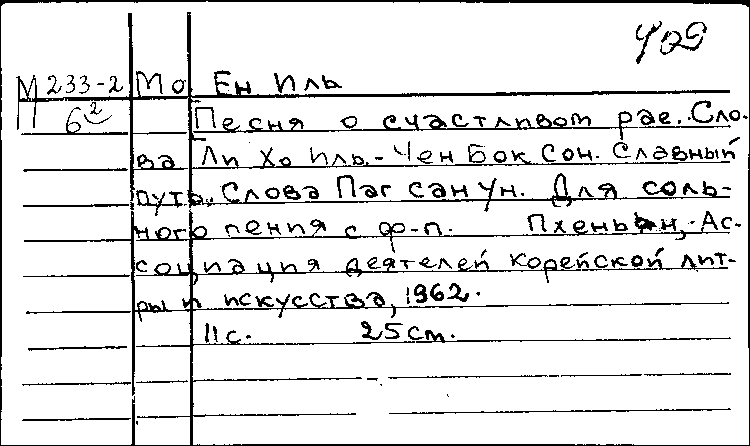 409
М 233-2 Мо Ен Иль
П 6² [Песня о счастливом рае. Сло-
ва Ли Хо Иль.- Чен Бок Сон. Славный
путь. Слова Паг сан ун. Для соль-
ного пения с ф-п. Пхеньян, Ас-
социация деятелей корейской лит-
ры и искусства, 1962.
11 с. 25 cm.